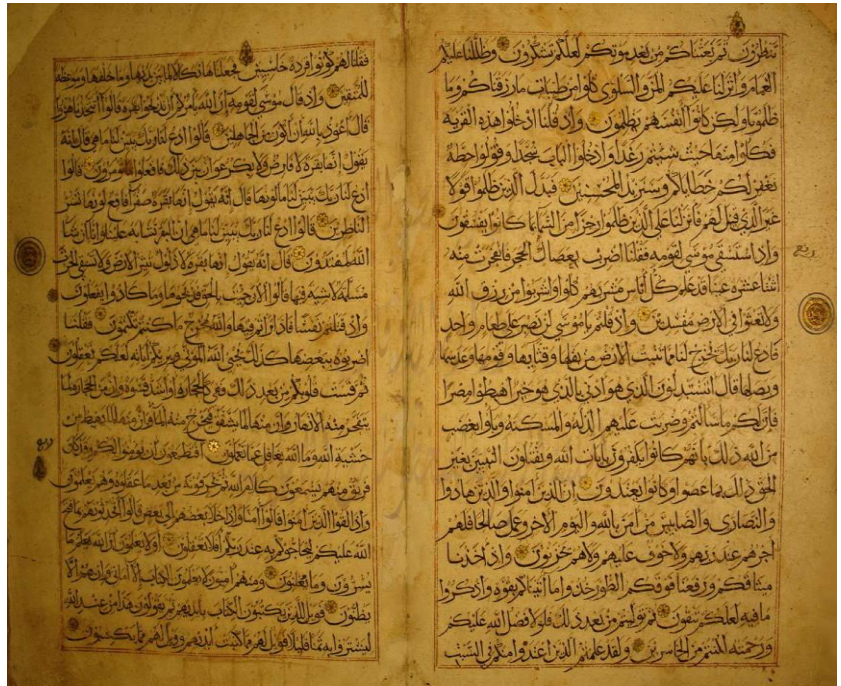 تنظرون ثم بعثناكم من بعد موتكم لعلكم تشكرون وظللنا عليكم
الغمام وانزلنا عليكم المن والسلوى كلوا من طيبات ما رزقناكم وما
ظلمونا ولكن كانوا انفسهم يظلمون واذ قلنا ادخلوا هذه القرية
فكلوا منها حيث شئتم رغدا وادخلوا الباب سجدا وقولوا حطة
نغفر لكم خطاياكم وسنزيد المحسنين فبدل الذين ظلموا قولا
غير الذي قيل لهم فانزلنا على الذين ظلموا رجزا من السماء بما كانوا يفسقون
واذ استسقى موسى لقومه فقلنا اضرب بعصاك الحجر فانفجرت منه
اثنتا عشرة عينا قد علم كل اناس مشربهم كلوا واشربوا من رزق الله
ولا تعثوا في الارض مفسدين واذ قلتم يا موسى لن نصبر على طعام واحد
فادع لنا ربك يخرج لنا مما تنبت الارض من بقلها وقثائها وفومها وعدسها
وبصلها قال اتستبدلون الذي هو ادنى بالذي هو خير اهبطوا مصرا
فان لكم ما سالتم وضربت عليهم الذلة والمسكنة وباؤا بغضب
من الله ذلك بانهم كانوا يكفرون بايات الله ويقتلون النبيين بغير
الحق ذلك بما عصوا وكانوا يعتدون ان الذين امنوا والذين هادوا
والنصارى والصابين من امن بالله واليوم الاخر وعمل صالحا فلهم
اجرهم عند ربهم ولا خوف عليهم ولا هم يحزنون واذ اخذنا
ميثاقكم ورفعنا فوقكم الطور خذوا ما اتيناكم بقوة واذكروا
ما فيه لعلكم تتقون ثم توليتم من بعد ذلك فلولا فضل الله عليكم
ورحمته لكنتم من الخاسرين ولقد علمتم الذين اعتدوا منكم في السبت
ربع
فقلنا لهم كونوا قردة خاسئين فجعلناها نكالا لما بين يديها وما خلفها وموعظة
للمتقين واذ قال موسى لقومه ان الله يامركم ان تذبحوا بقرة قالوا اتتخذنا هزوا
قال اعوذ بالله ان اكون من الجاهلين قالوا ادع لنا ربك يبين لنا ما هي قال انه
يقول انها بقرة لا فارض ولا بكر عوان بين ذلك فافعلوا ما تؤمرون قالوا
ادع لنا ربك يبين لنا ما لونها قال انه يقول انها بقرة صفراء فاقع لونها تسر
الناظرين قالوا ادع لنا ربك يبين لنا ما هي ان البقر تشابه علينا وانا ان شاء
الله لمهتدون قال انه يقول انها بقرة لا ذلول تثير الارض ولا تسقي الحرث
مسلمة لا شية فيها قالوا الان جئت بالحق فذبحوها وما كادوا يفعلون
واذ قتلتم نفسا فاداراتم فيها والله مخرج ما كنتم تكتمون فقلنا
اضربوه ببعضها كذلك يحيي الله الموتى ويريكم اياته لعلكم تعقلون
ثم قست قلوبكم من بعد ذلك فهي كالحجارة او اشد قسوة وان من الحجارة لما
يتفجر منه الانهار وان منها لما يشقق فيخرج منه الماء وان منها لما يهبط من
خشية الله وما الله بغافل عما تعملون افتطمعون ان يؤمنوا لكم وقد كان
فريق منهم يسمعون كلام الله ثم يحرفونه من بعد ما عقلوه وهم يعلمون
واذا لقوا الذين امنوا قالوا امنا واذا خلا بعضهم الى بعض قالوا اتحدثونهم بما فتح
الله عليكم ليحاجوكم به عند ربكم افلا تعقلون اولا يعلمون ان الله يعلم ما
يسرون وما يعلنون ومنهم اميون لا يعلمون الكتاب الا اماني وان هم الا
يظنون فويل للذين يكتبون الكتاب بايديهم ثم يقولون هذا من عند الله
ليشتروا به ثمنا قليلا فويل لهم مما كتبت ايديهم وويل لهم مما يكسبون
ربع